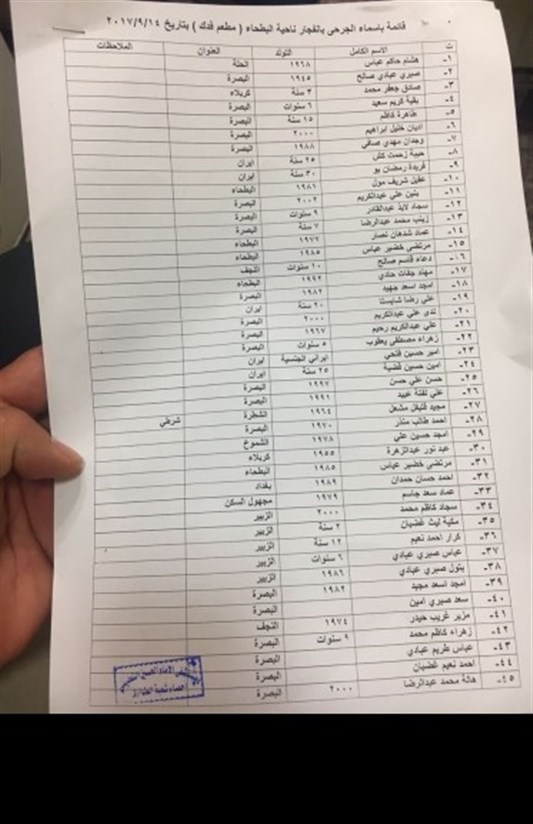 قائمة بأسماء الجرحى بانفجار ناحية البطحاء ( مطعم فدك ) بتاريخ ٢٠١٧/٩/١٤
ت الاسم الكامل التولد العنوان الملاحظات
١- هشام حاكم عباس ١٩٦٨ الحلة
٢- صبري عبادي صالح ١٩٤٥ البصرة
٣- صادق جعفر محمد ٣ سنة كربلاء
٤- بقية كريم سعيد ٦ سنوات البصرة
٥- طاهرة كاظم ١٥ سنة البصرة
٦- اديان خليل ابراهيم ٢٠٠٠ البصرة
٧- وجدان مهدي صافي ١٩٨٨ البصرة
٨- حبيبة زحمت كش ٢٥ سنة ايران
٩- فريدة رمضان بو ٣٠ سنة ايران
١٠- عقيل شريف مول ١٩٨١ البطحاء
١١- بنين علي عبدالكريم ٢٠٠٢ البصرة
١٢- سجاد لايذ عبدالقادر ٩ سنوات البصرة
١٣- زينب محمد عبدالرضا ٧ سنة البصرة
١٤- عماد شدهان نصار ١٩٧٢ البطحاء
١٥- مرتضى خضير عباس ١٩٨٥ البطحاء
١٦- دعاء قاسم صالح ١٠ سنوات النجف
١٧- مهند جفات حادي ١٩٩٢ البطحاء
١٨- امجد اسعد جهيد ١٩٨٢ البصرة
١٩- علي رضا شايستا ٢٠ سنة ايران
٢٠- ندى علي عبدالكريم ٢٠٠٠ البصرة
٢١- علي عبدالكريم رحيم ١٩٦٧ البصرة
٢٢- زهراء مصطفى يعقوب ٥ سنوات البصرة
٢٣- امير حسين فتحي ايراني الجنسية ايران
٢٤- امين حسين فضية ٢٥ سنة ايران
٢٥- حسن علي حسن ١٩٩٧ البصرة
٢٦- علي لفتة عبيد ١٩٩١ البصرة
٢٧- مجيد فليفل مشعل ١٩٦٤ الشطرة شرطي
٢٨- احمد طالب منذر ١٩٧٠ البصرة
٢٩- امجد حسين علي ١٩٧٨ الشموخ
٣٠- عبد نور عبدالزهرة ١٩٥٥ كربلاء
٣١- مرتضى خضير عباس ١٩٨٥ البطحاء
٣٢- احمد حسان حمدان ١٩٨٩ بغداد
٣٣- عماد سعد جاسم ١٩٧٩ مجهول السكن
٣٤- سجاد كاظم محمد ٢٠٠٠ الزبير
٣٥- مكية ليث غضبان ٢ سنة الزبير
٣٦- كرار احمد نعيم ١٢ سنة الزبير
٣٧- عباس صبري عبادي ٦ سنوات الزبير
٣٨- بتول صبري عبادي ١٩٨٦ الزبير
٣٩- امجد اسعد مجيد ١٩٨٢ البصرة
٤٠- سعد صبري امين البصرة
٤١- مزير غريب حيدر ١٩٧٤ النجف
٤٢- زهراء كاظم محمد ٩ سنوات البصرة
٤٣- عباس طريم عبادي البصرة
٤٤- احمد نعيم غضبان البصرة
٤٥- هالة محمد عبدالرضا ٢٠٠٠ البصرة